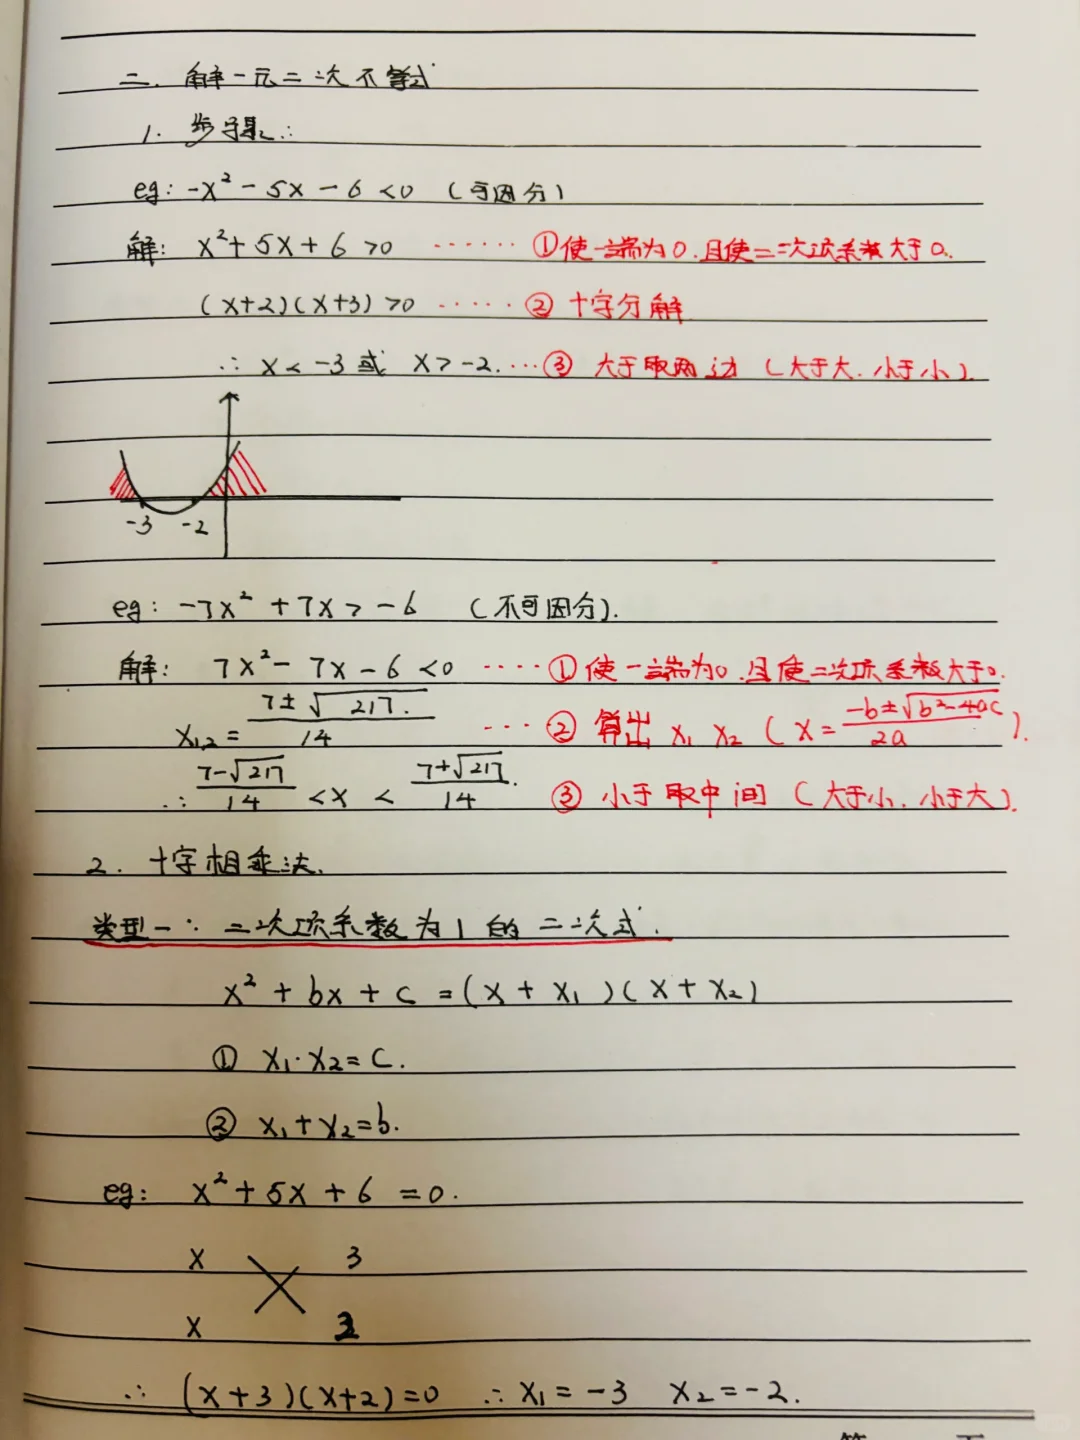 二. 解一元二次不等式
1. 步骤:
eg: -x² - 5x - 6 <0 (可因分)
解: x² + 5x + 6 >0 ······ ①使一端为0.且使二次项系数大于0.
(x+2)(x+3) >0 ····· ② 十字分解
∴ x < -3 或 x > -2. ··· ③ 大于取两边 (大于大.小于小).
-3 -2
eg: -7x² + 7x > -6 (不可因分).
解: 7x² - 7x - 6 <0 ···· ①使一端为0.且使二次项系数大于0.
x₁,₂ = (7±√217.)/14 ··· ② 算出 x₁ x₂ (x = (-b±√(b²-4ac))/2a).
∴ (7-√217)/14 < x < (7+√217)/14. ③ 小于取中间 (大于小.小于大).
2. 十字相乘法.
类型一: 二次项系数为1的二次式.
x² + bx + c = (x + x₁)(x + x₂)
① x₁·x₂ = c.
② x₁ + x₂ = b.
eg: x² + 5x + 6 = 0.
x 3
x 2
∴ (x+3)(x+2)=0 ∴ x₁ = -3 x₂ = -2.